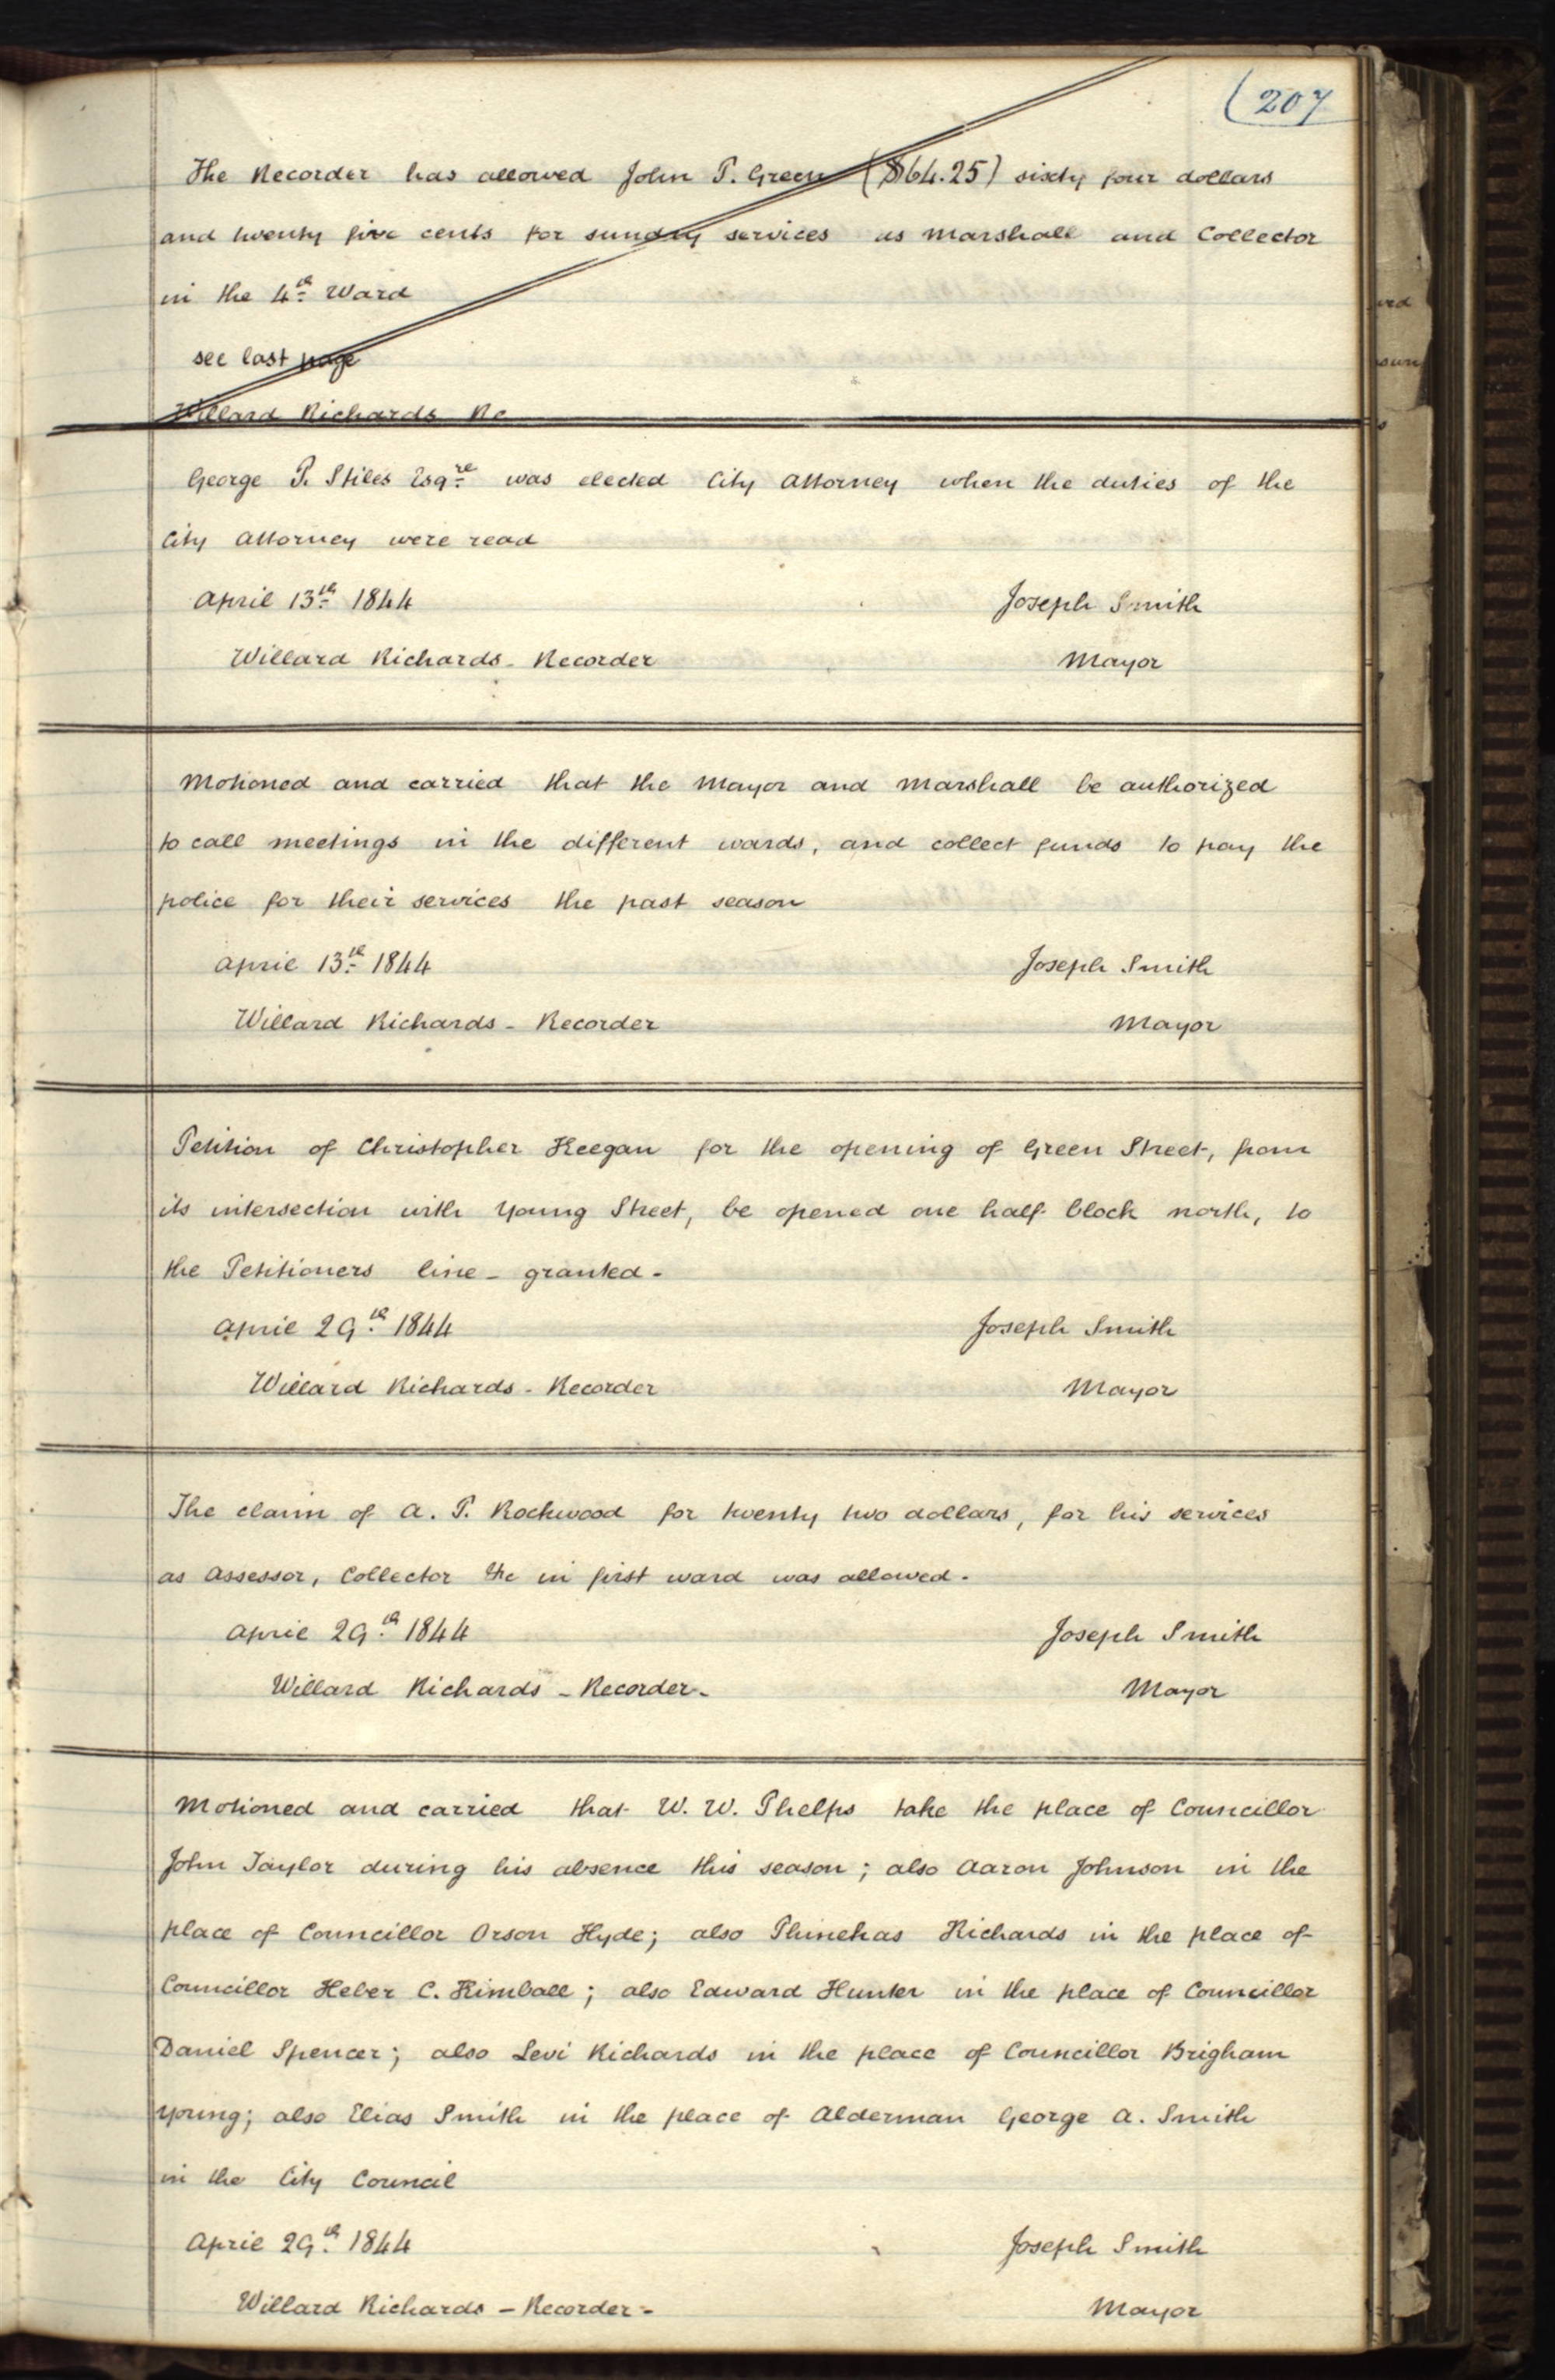 (207
The Recorder has allowed John P. Green ($64.25) sixty four dollars
and twenty five cents for sundry services as Marshall and Collector
in the 4th Ward
see last page
Willard Richards Re
George P. Stiles Esqre was elected City Attorney when the duties of the
City Attorney were read
April 13th 1844 Joseph Smith
Willard Richards - Recorder Mayor
Motioned and carried that the Mayor and Marshall be authorized
to call meetings in the different wards, and collect funds to pay the
police for their services the past season
April 13th 1844 Joseph Smith
Willard Richards - Recorder Mayor
Petition of Christopher Keegan for the opening of Green Street, from
its intersection with Young Street, be opened one half block north, to
the Petitioners line - granted -
April 29th 1844 Joseph Smith
Willard Richards - Recorder Mayor
The claim of A. P. Rockwood for twenty two dollars, for his services
as Assessor, Collector &c in first ward was allowed.
April 29th 1844 Joseph Smith
Willard Richards - Recorder - Mayor
Motioned and carried that W. W. Phelps take the place of Councillor
John Taylor during his absence this season; also Aaron Johnson in the
place of Councillor Orson Hyde; also Phinehas Richards in the place of
Councillor Heber C. Kimball; also Edward Hunter in the place of Councillor
Daniel Spencer; also Levi Richards in the place of Councillor Brigham
Young; also Elias Smith in the place of Alderman George A. Smith
in the City Council
April 29th 1844 Joseph Smith
Willard Richards - Recorder - Mayor